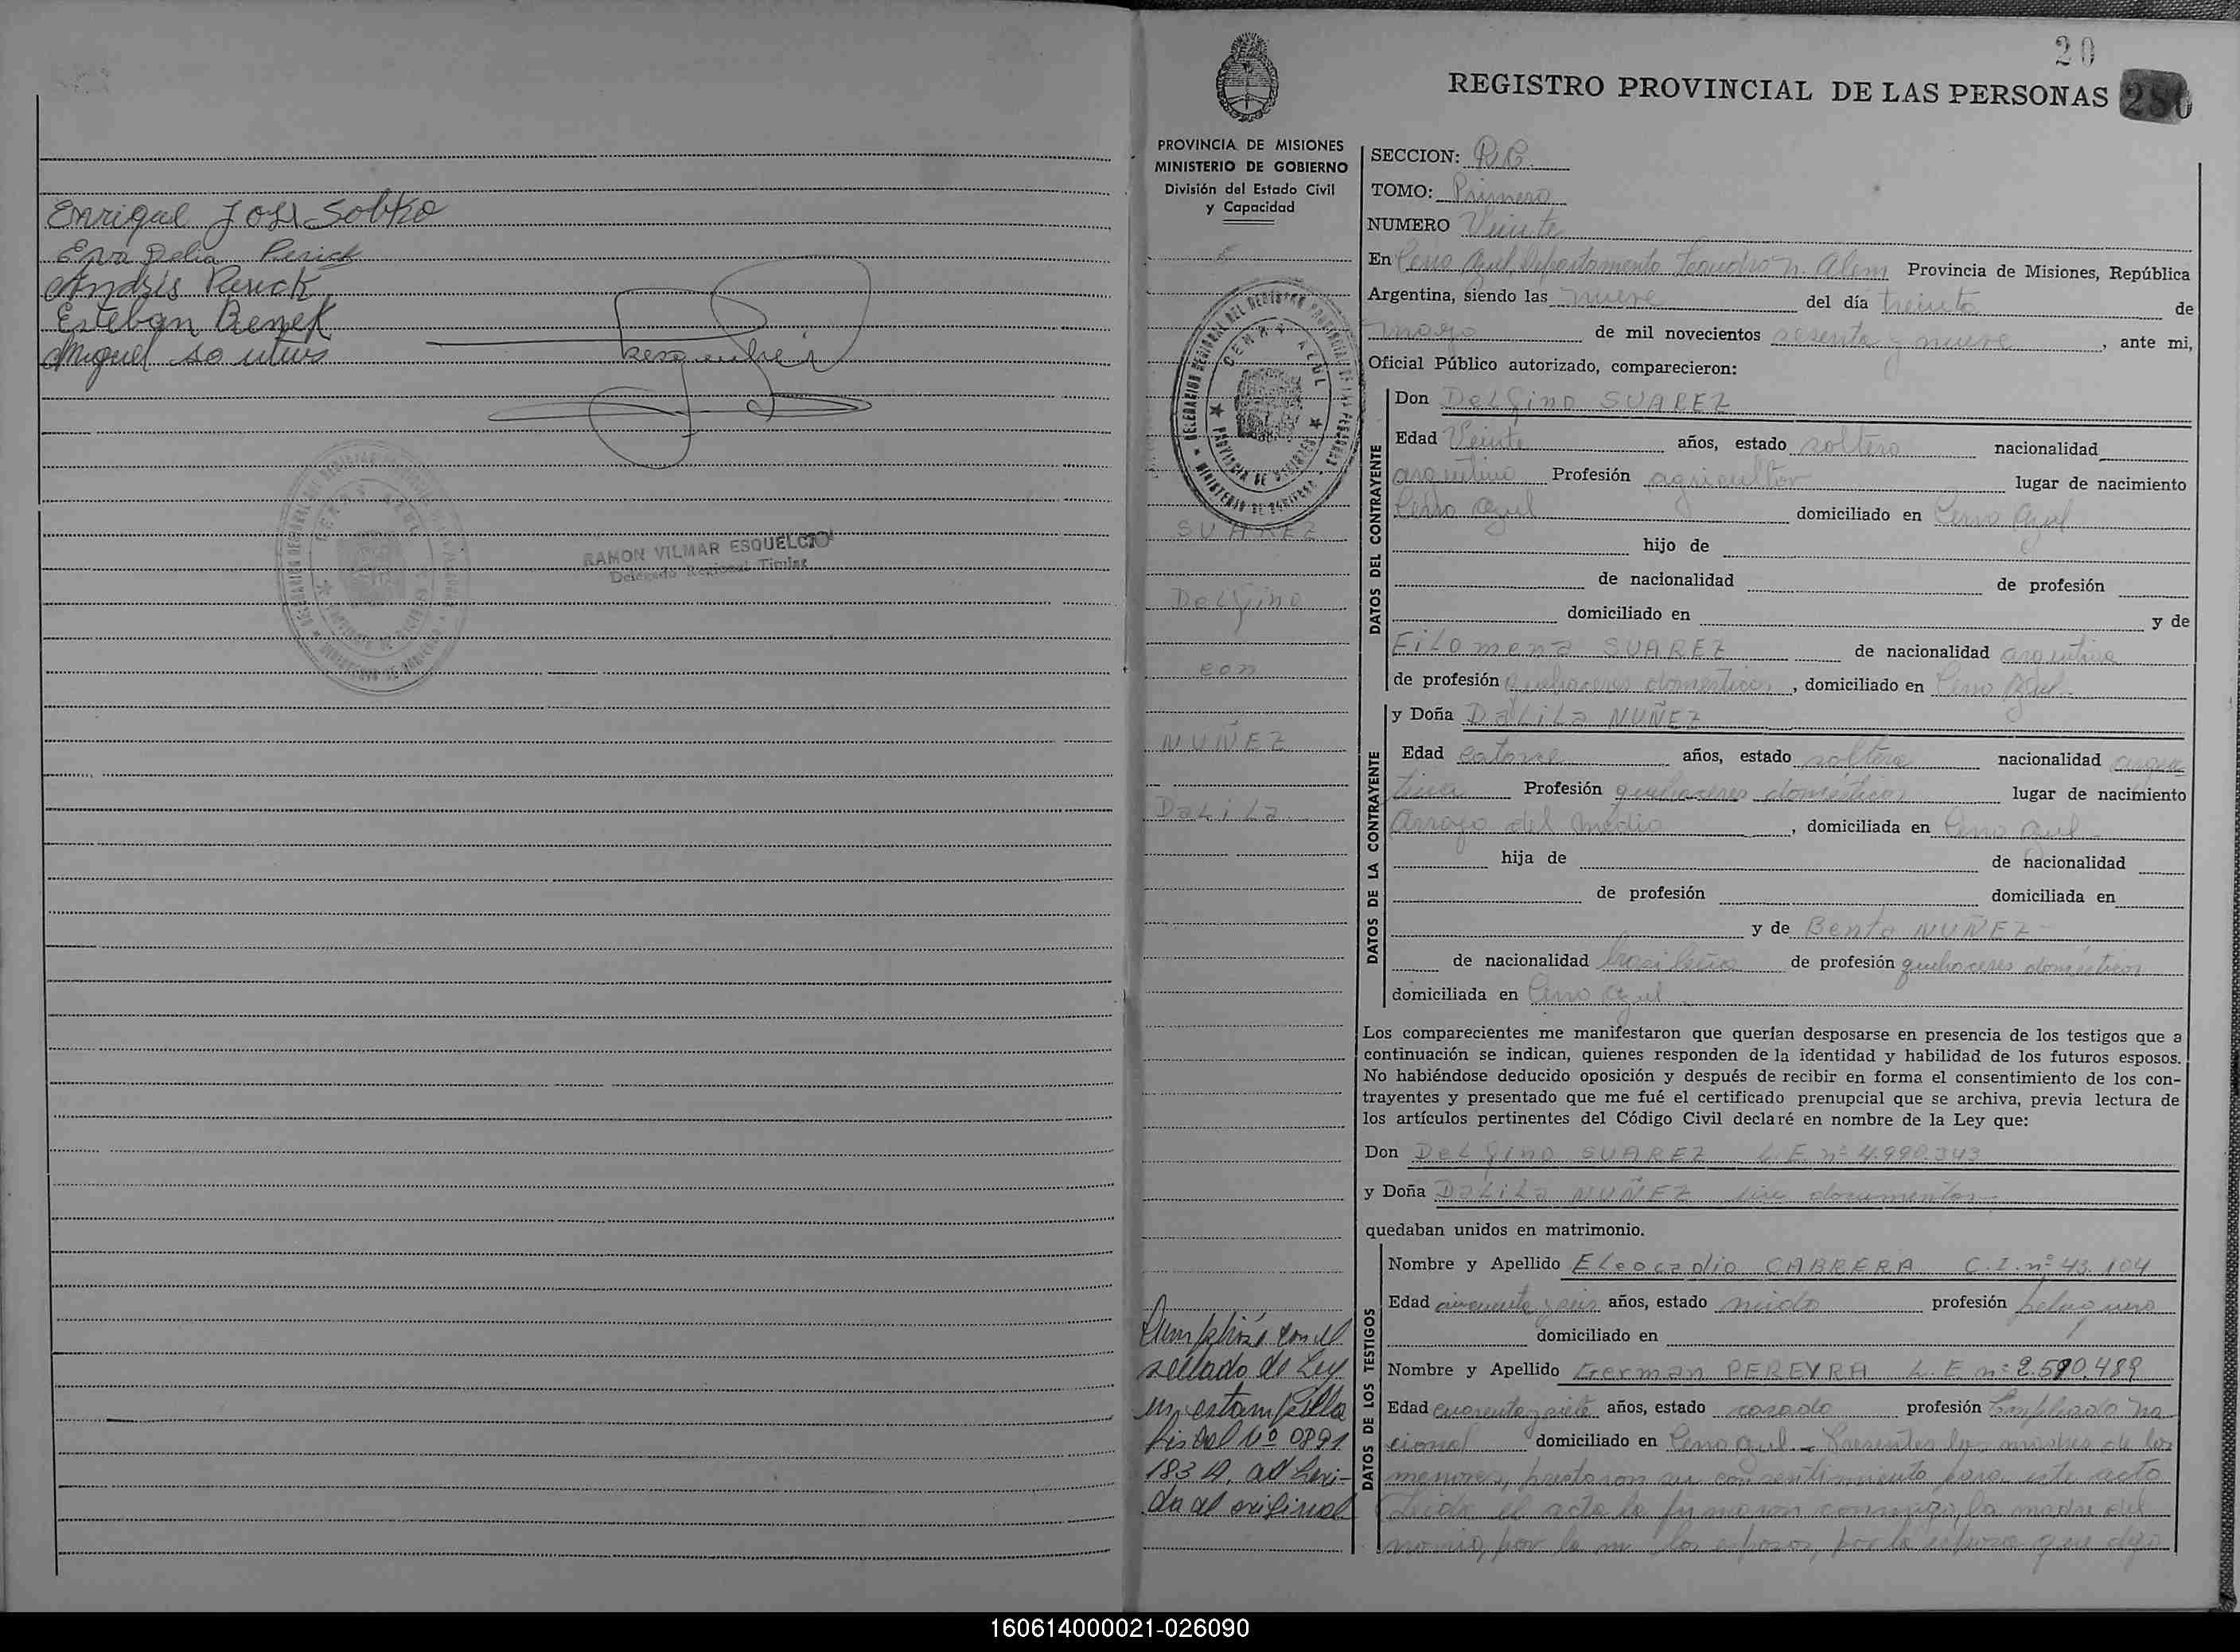 Enrique José Sobko
Eva Delia Perick
Andrés Perick
Esteban Benek
Miguel
RAMON VILMAR ESQUELCIO
Delegado Regional Titular
20
REGISTRO PROVINCIAL DE LAS PERSONAS
280
PROVINCIA DE MISIONES
MINISTERIO DE GOBIERNO
División del Estado Civil
y Capacidad
CERRO AZUL
PROVINCIA DE MISIONES
SUAREZ
Delfino
con
NUÑEZ
Dalila
Cumplióse con el
sellado de Ley
en estampilla
fiscal Nº 0891
183 A, adheri-
da al original
SECCION:
TOMO: Primero
NUMERO Veinte
En Cerro Azul, Departamento Leandro N. Alem Provincia de Misiones, República
Argentina, siendo las nueve del día treinta de
mayo de mil novecientos sesenta y nueve, ante mi,
Oficial Público autorizado, comparecieron:
DATOS DEL CONTRAYENTE
Don Delfino SUAREZ
Edad Veinte años, estado soltero nacionalidad
argentino Profesión agricultor lugar de nacimiento
Cerro Azul domiciliado en Cerro Azul
hijo de
de nacionalidad de profesión
domiciliado en y de
Filomena SUAREZ de nacionalidad argentina
de profesión quehaceres domésticos, domiciliado en Cerro Azul.
DATOS DE LA CONTRAYENTE
y Doña Dalila NUÑEZ
Edad catorce años, estado soltera nacionalidad argen-
tina Profesión quehaceres domésticos lugar de nacimiento
Arroyo del Medio, domiciliada en Cerro Azul
hija de de nacionalidad
de profesión domiciliada en
y de Benta NUÑEZ
de nacionalidad brasileña de profesión quehaceres domésticos
domiciliada en Cerro Azul
Los comparecientes me manifestaron que querían desposarse en presencia de los testigos que a
continuación se indican, quienes responden de la identidad y habilidad de los futuros esposos.
No habiéndose deducido oposición y después de recibir en forma el consentimiento de los con-
trayentes y presentado que me fué el certificado prenupcial que se archiva, previa lectura de
los artículos pertinentes del Código Civil declaré en nombre de la Ley que:
Don Delfino SUAREZ L.E. nº 4.990.343
y Doña Dalila NUÑEZ sin documentos
quedaban unidos en matrimonio.
DATOS DE LOS TESTIGOS
Nombre y Apellido Eleocadio CABRERA C.I. nº 43.104
Edad cincuenta y seis años, estado viudo profesión peluquero
domiciliado en
Nombre y Apellido German PEREYRA L.E. nº 2.590.489
Edad cuarenta y siete años, estado casado profesión Empleado Na
cional domiciliado en Cerro Azul.- Presentes las madres de los
menores, prestaron su consentimiento para este acto
Leida el acta la firmaron conmigo, la madre del
novio, por la los esposos, por la esposa que dijo
160614000021-026090